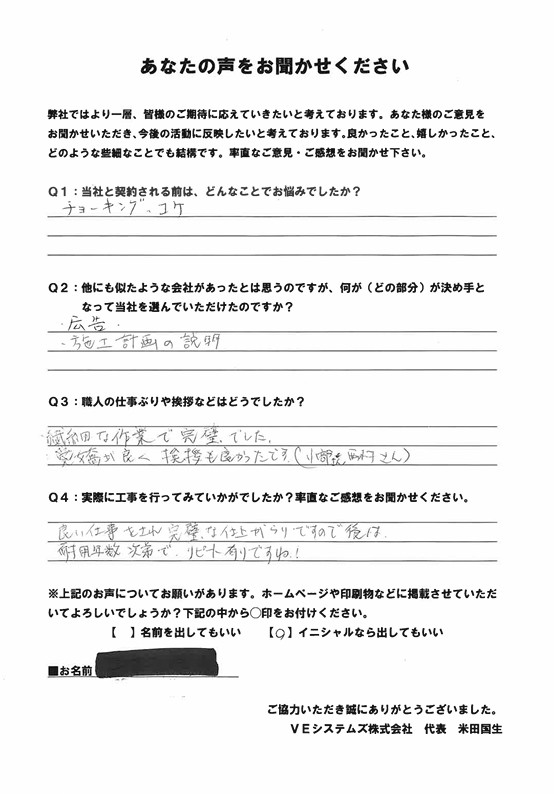 あなたの声をお聞かせください
弊社ではより一層、皆様のご期待に応えていきたいと考えております。あなた様のご意見を
お聞かせいただき、今後の活動に反映したいと考えております。良かったこと、嬉しかったこと、
どのような些細なことでも結構です。率直なご意見・ご感想をお聞かせ下さい。
Q1：当社と契約される前は、どんなことでお悩みでしたか？
チョーキング、コケ
Q2：他にも似たような会社があったとは思うのですが、何が（どの部分）が決め手と
なって当社を選んでいただけたのですか？
・広告・
・施工計画の説明
Q3：職人の仕事ぶりや挨拶などはどうでしたか？
繊細な作業で完璧でした。
が良く挨拶も良かったです。(小 さん)
Q4：実際に工事を行ってみていかがでしたか？率直なご感想をお聞かせください。
良い仕事をされ完璧な仕上がりですので後は、
耐用年数次第で、リピート有りですね！
※上記のお声についてお願いがあります。ホームページや印刷物などに掲載させていただ
いてよろしいでしょうか？下記の中から○印をお付けください。
【 】名前を出してもいい 【○】イニシャルなら出してもいい
■お名前
ご協力いただき誠にありがとうございました。
VEシステムズ株式会社 代表 米田国生